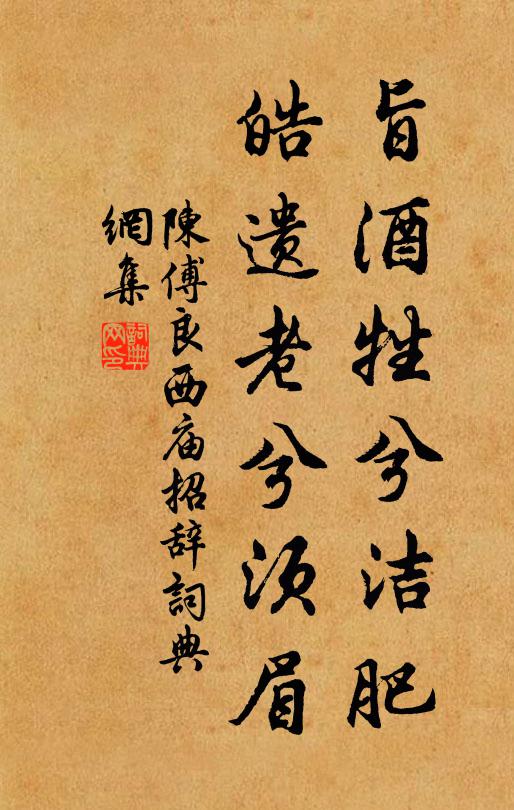 旨酒牲兮洁肥
皓遗老兮须眉
陳傅良西庙招辞詞典
網集
詞典
网印